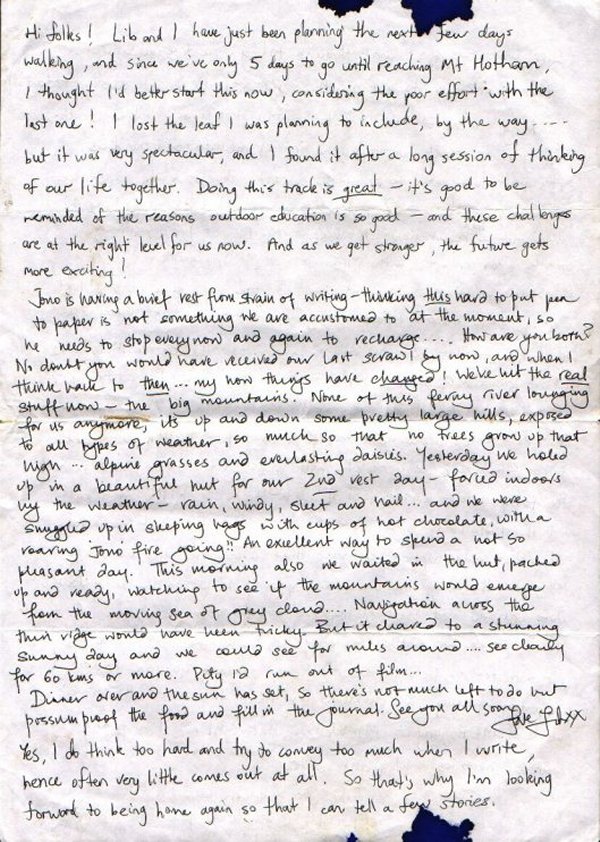 Hi folks! Lib and I have just been planning the next few days
walking, and since we've only 5 days to go until reaching Mt Hotham,
I thought I'd better start this now, considering the poor effort with the
last one! I lost the leaf I was planning to include, by the way....
but it was very spectacular, and I found it after a long session of thinking
of our life together. Doing this track is great - it's good to be
reminded of the reasons outdoor education is so good - and these challenges
are at the right level for us now. And as we get stronger, the future gets
more exciting!
Jono is having a brief rest from strain of writing - thinking this hard to put pen
to paper is not something we are accustomed to at the moment, so
he needs to stop every now and again to recharge.... How are you both?
No doubt you would have received our last scrawl by now, and when I
think back to then... my how things have changed! We've hit the real
stuff now - the big mountains. None of this ferny river lounging
for us anymore, its up and down some pretty large hills, exposed
to all types of weather, so much so that no trees grow up that
high... alpine grasses and everlasting daisies. Yesterday we holed
up in a beautiful hut for our 2nd rest day - forced indoors
by the weather - rain, windy, sleet and hail... and we were
snuggled up in sleeping bags with cups of hot chocolate, with a
roaring Jono fire going!! An excellent way to spend a not so
pleasant day. This morning also we waited in the hut, packed
up and ready, watching to see if the mountains would emerge
from the moving sea of grey cloud.... Navigation across the
thin ridge would have been tricky. But it cleared to a stunning
sunny day and we could see for miles around.... see clearly
for 60 kms or more. Pity I'd run out of film...
Dinner over and the sun has set, so there's not much left to do but
possum proof the food and fill in the journal. See you all soon
Love Lib xx
Yes, I do think too hard and try to convey too much when I write,
hence often very little comes out at all. So that's why I'm looking
forward to being home again so that I can tell a few stories.